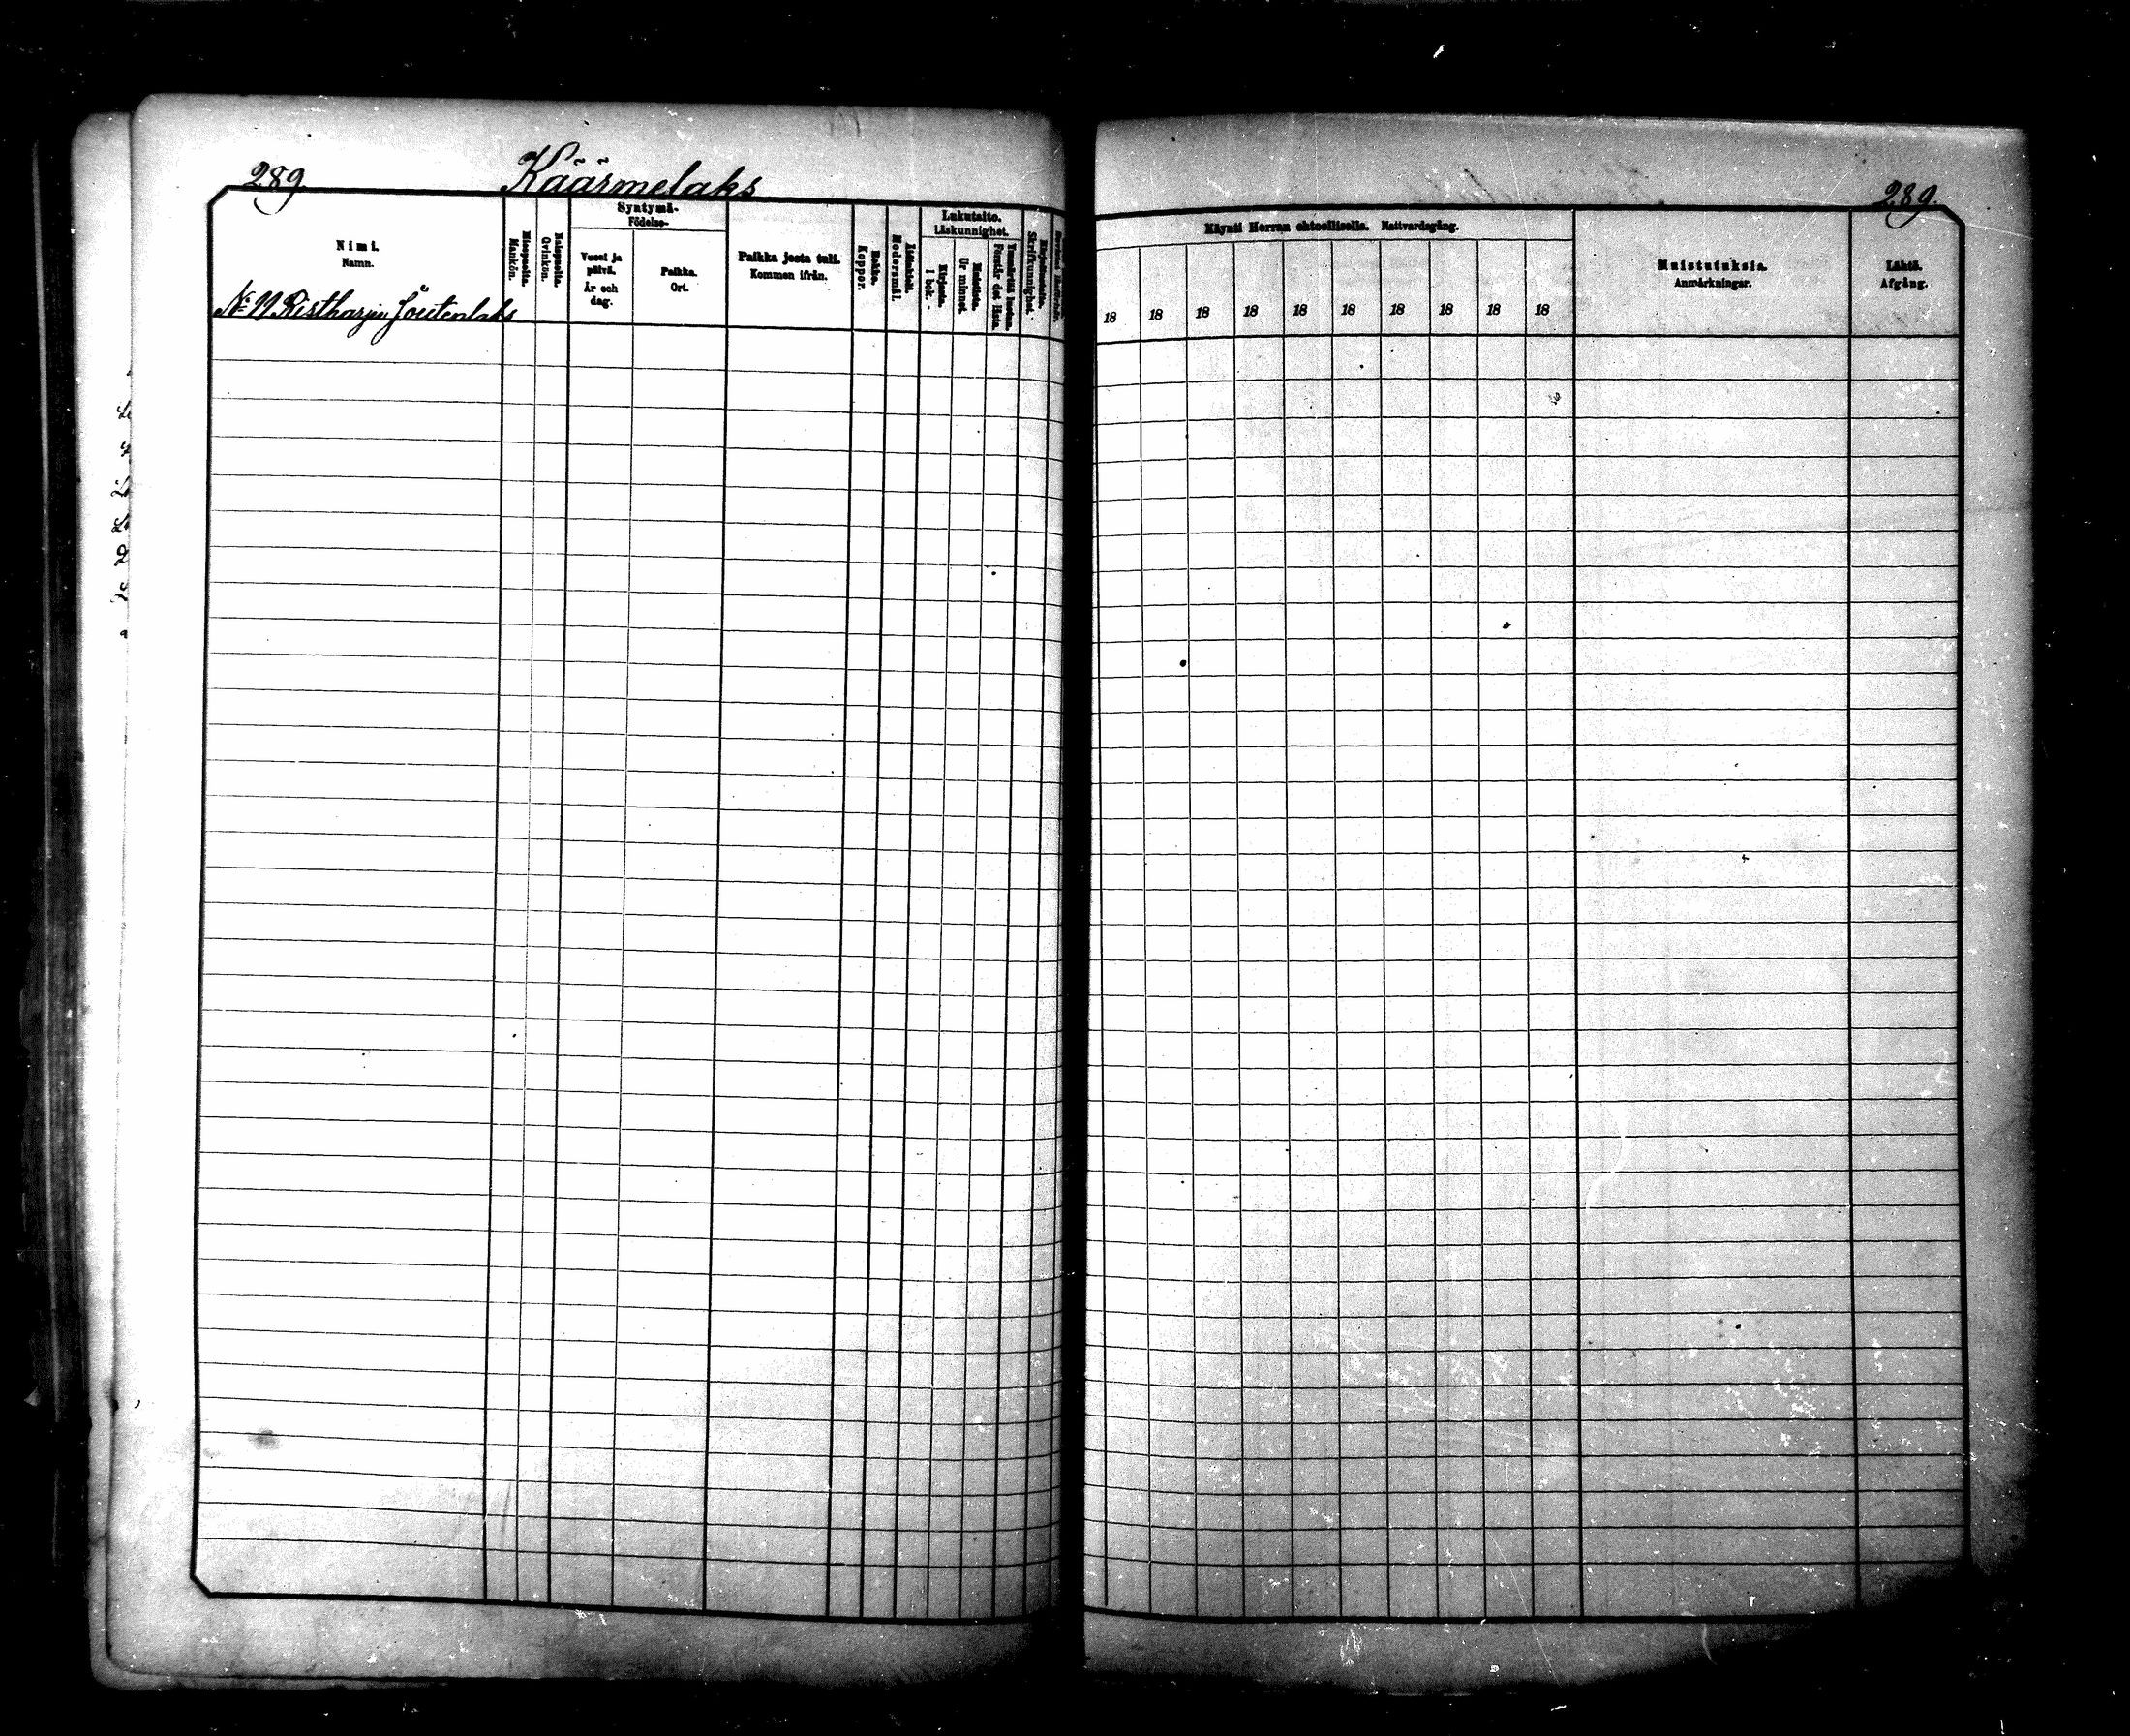 289.
Käärmelaks
289.
Nimi.
Namn.
Miespuolia.
Mankön.
Naispuolia.
Qvinkön.
Syntymä-
Födelse-
Vuosi ja
päivä.
År och
dag.
Paikka.
Ort.
Paikka josta tuli.
Kommen ifrån.
Rokko.
Koppor.
Äidinkieli.
Modersmål.
Lukutaito.
Läskunnighet.
Kirjasta.
I bok.
Ur minnet.
Förstår det lästa.
Skrifkunnighet.
Käynti Herran ehtoollisella. Nattvardsgång.
18 18 18 18 18 18 18 18 18 18
Muistutuksia.
Anmärkningar.
Lähtö.
Afgång.
No 11 Ristharju Joutenlaks